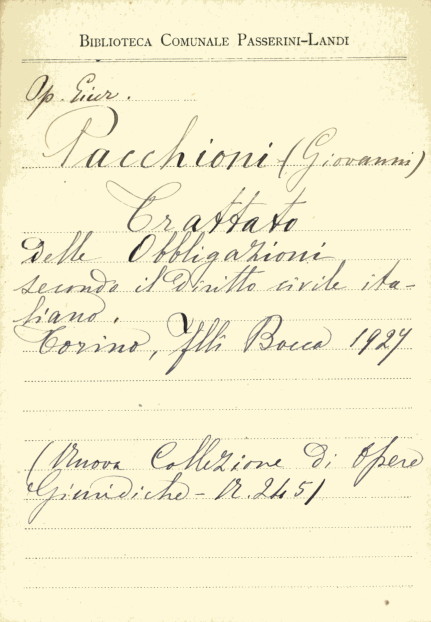 BIBLIOTECA COMUNALE PASSERINI-LANDI
Op. Giur.
Pacchioni (Giovanni)
Trattato
delle Obbligazioni
secondo il diritto civile ita-
liano.
Torino, Flli Bocca 1927
(Nuova Collezione di Opere
Giuridiche - N. 245)